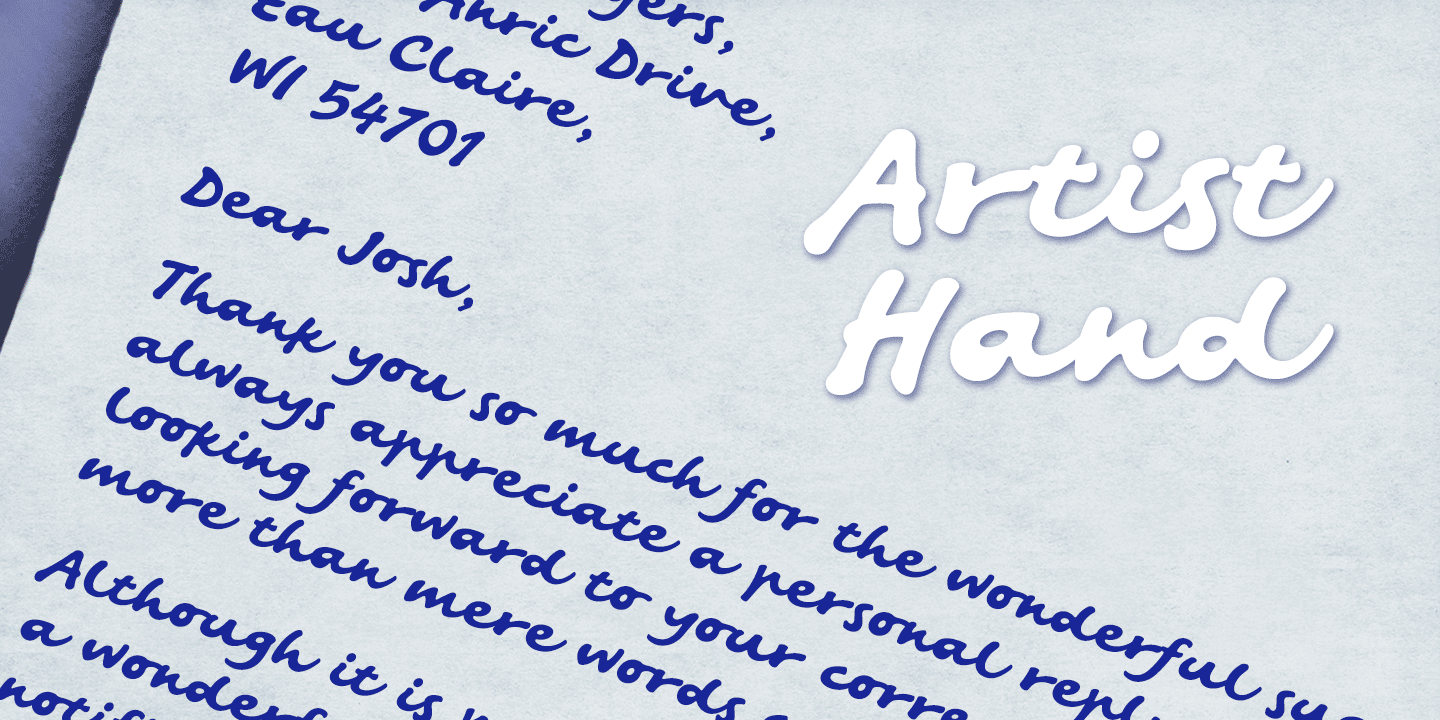 Anric Drive,
Eau Claire,
WI 54701
Dear Josh,
Thank you so much for the wonderful
always appreciate a personal
looking forward to your
more than mere words
Although it is
a wonderf
Artist
Hand